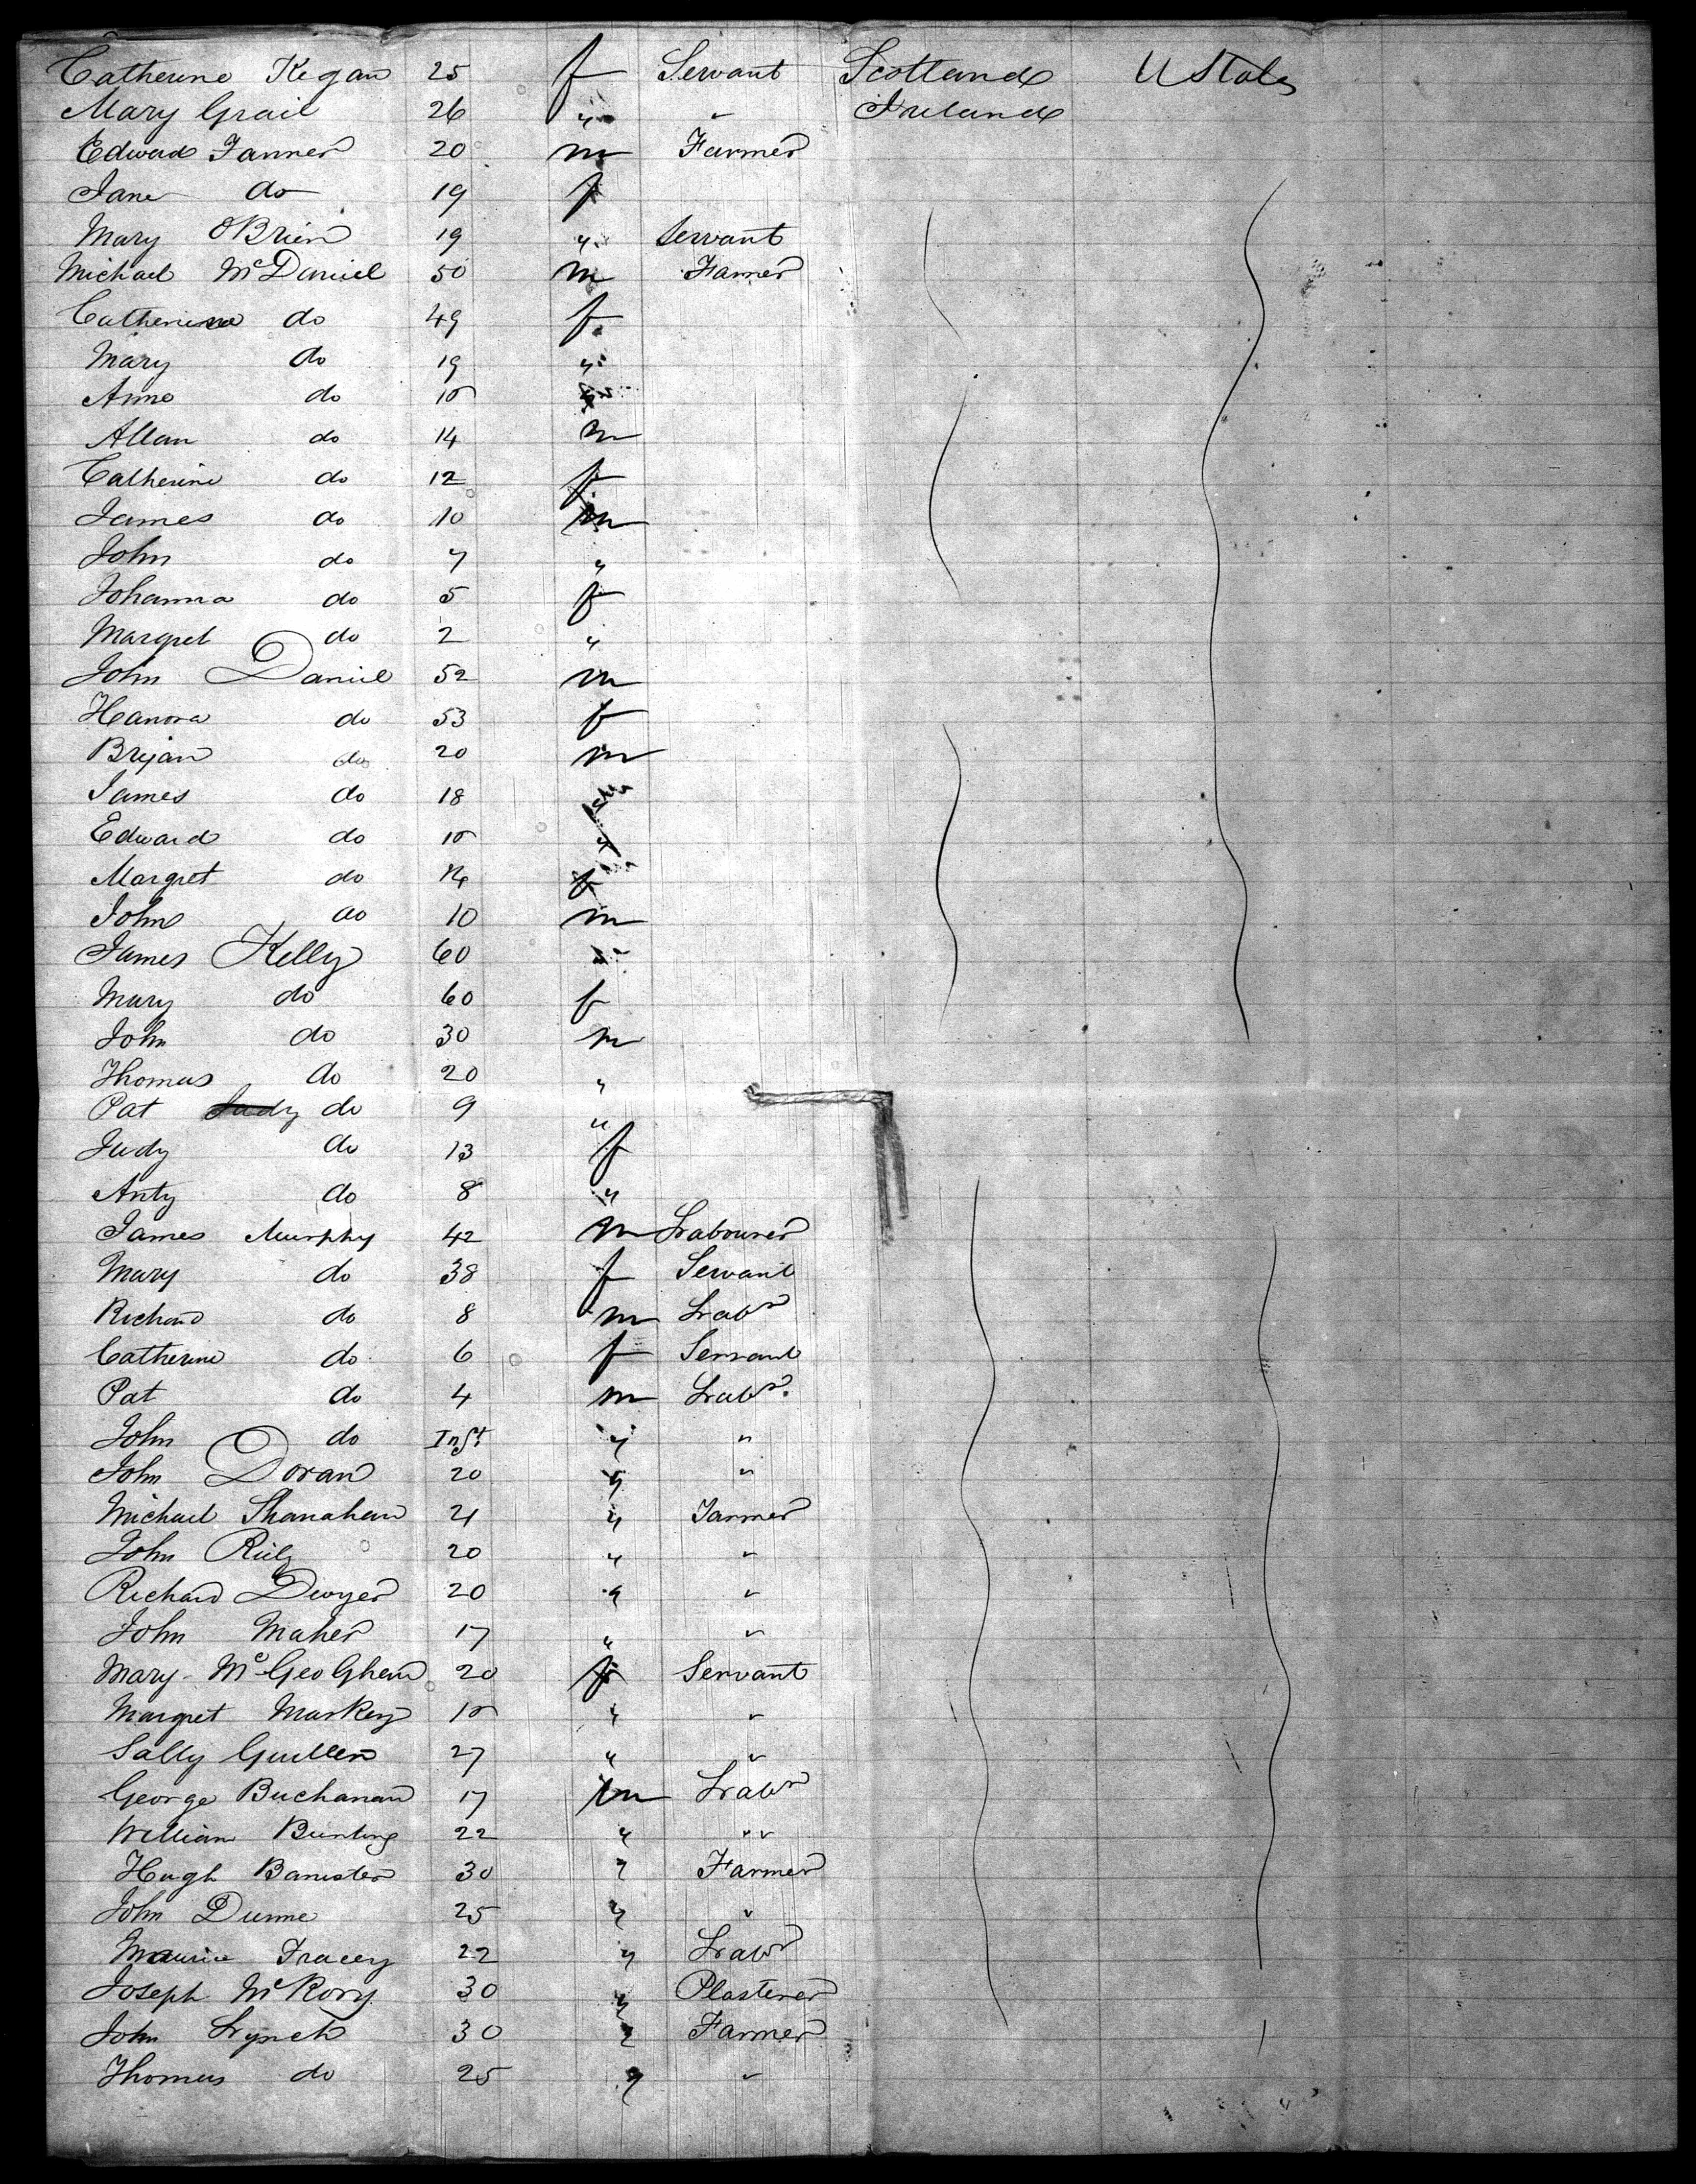 Catherine Kegan 25 f Servant Scotland U States
Mary Grail 26 " " Ireland
Edward Fanner 20 m Farmer
Jane do 19 f
Mary OBrien 19 " Servant
Michael McDaniel 50 m Farmer
Catherine do 49 f
Mary do 19 "
Anne do 15 "
Allan do 14 m
Catherine do 12 f
James do 10 m
John do 7 "
Johanna do 5 f
Margret do 2 "
John Daniel 52 m
Hanora do 53 f
Bryan do 20 m
James do 18 "
Edward do 15 "
Margret do 14 f
John do 10 m
James Kelly 60 "
Mary do 60 f
John do 30 m
Thomas do 20 "
Pat Judy do 9 "
Judy do 13 f
Anty do 8 "
James Murphy 42 m Labourer
Mary do 38 f Servant
Richard do 8 m Labr
Catherine do 6 f Servant
Pat do 4 m Labr.
John do Inft " "
John Doran 20 " "
Michael Shanahan 21 " Farmer
John Riely 20 " "
Richard Dwyer 20 " "
John Maher 17 " "
Mary McGeoGhan 20 f Servant
Margret Markey 15 " "
Sally Guillen 27 " "
George Buchanan 17 m Labr
William Bunting 22 " " "
Hugh Banister 30 " Farmer
John Dunne 25 " "
Maurice Tracey 22 " Labr
Joseph McRory 30 " Plasterer
John Lynch 30 " Farmer
Thomas do 25 " "